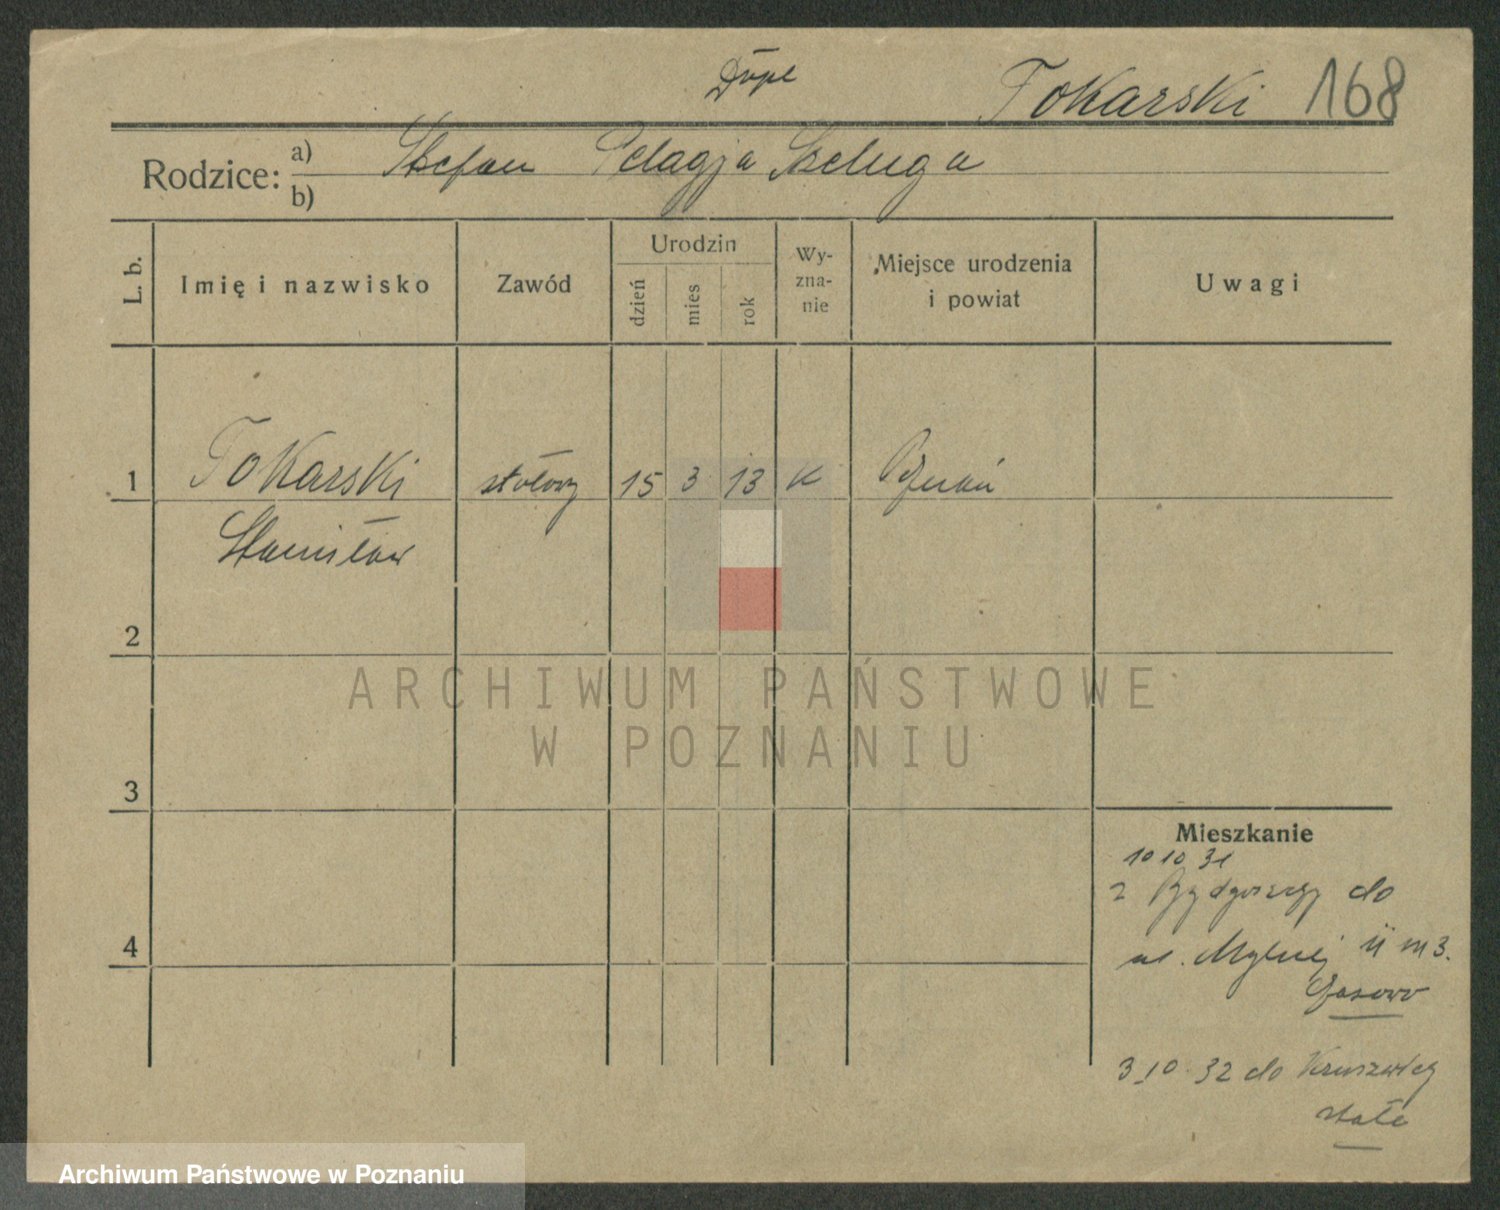 Dupl
Tokarski 168
Rodzice: a) Stefan Pelagja Szeluga
b)
L. b. Imię i nazwisko Zawód Urodzin dzień mies rok Wy-
zna-
nie Miejsce urodzenia
i powiat Uwagi
1 Tokarski stołowy 15 3 13 k Poznań
Stanisław
2
3
4
Mieszkanie
10 10 31
z Bydgoszczy do
ul. Mylnej 11 m 3.
3 10 32 do Kruszwicy
stałe
ARCHIWUM PAŃSTWOWE
W POZNANIU
Archiwum Państwowe w Poznaniu